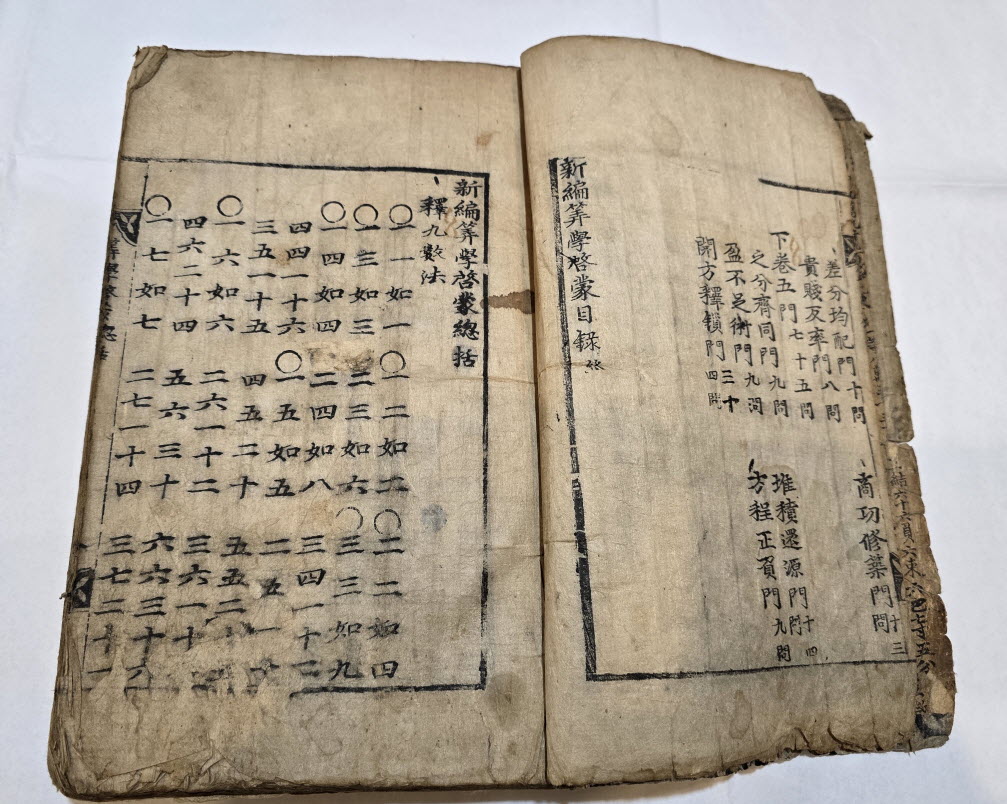 差分均配門十問 商功修築門十三問
貴賤反率門八問
下卷五門七十五問
之分齊同門九問 堆積還源門十四問
盈不足術門九問 方程正負門九問
開方釋鎖門三十四問
新編筭學啓蒙目錄終
新編筭學啓蒙總括
釋九數法
○一一如一 ○一二如二 ○二二如四
○一三如三 二三如六 ○三三如九
○一四如四 二四如八 三四一十二
四四一十六 ○一五如五 二五一十
三五一十五 四五二十 五五二十
○一六如六 二六一十二 三六一十
四六二十四 五六三十 六六三十六
○一七如七 二七一十四 三七二十一